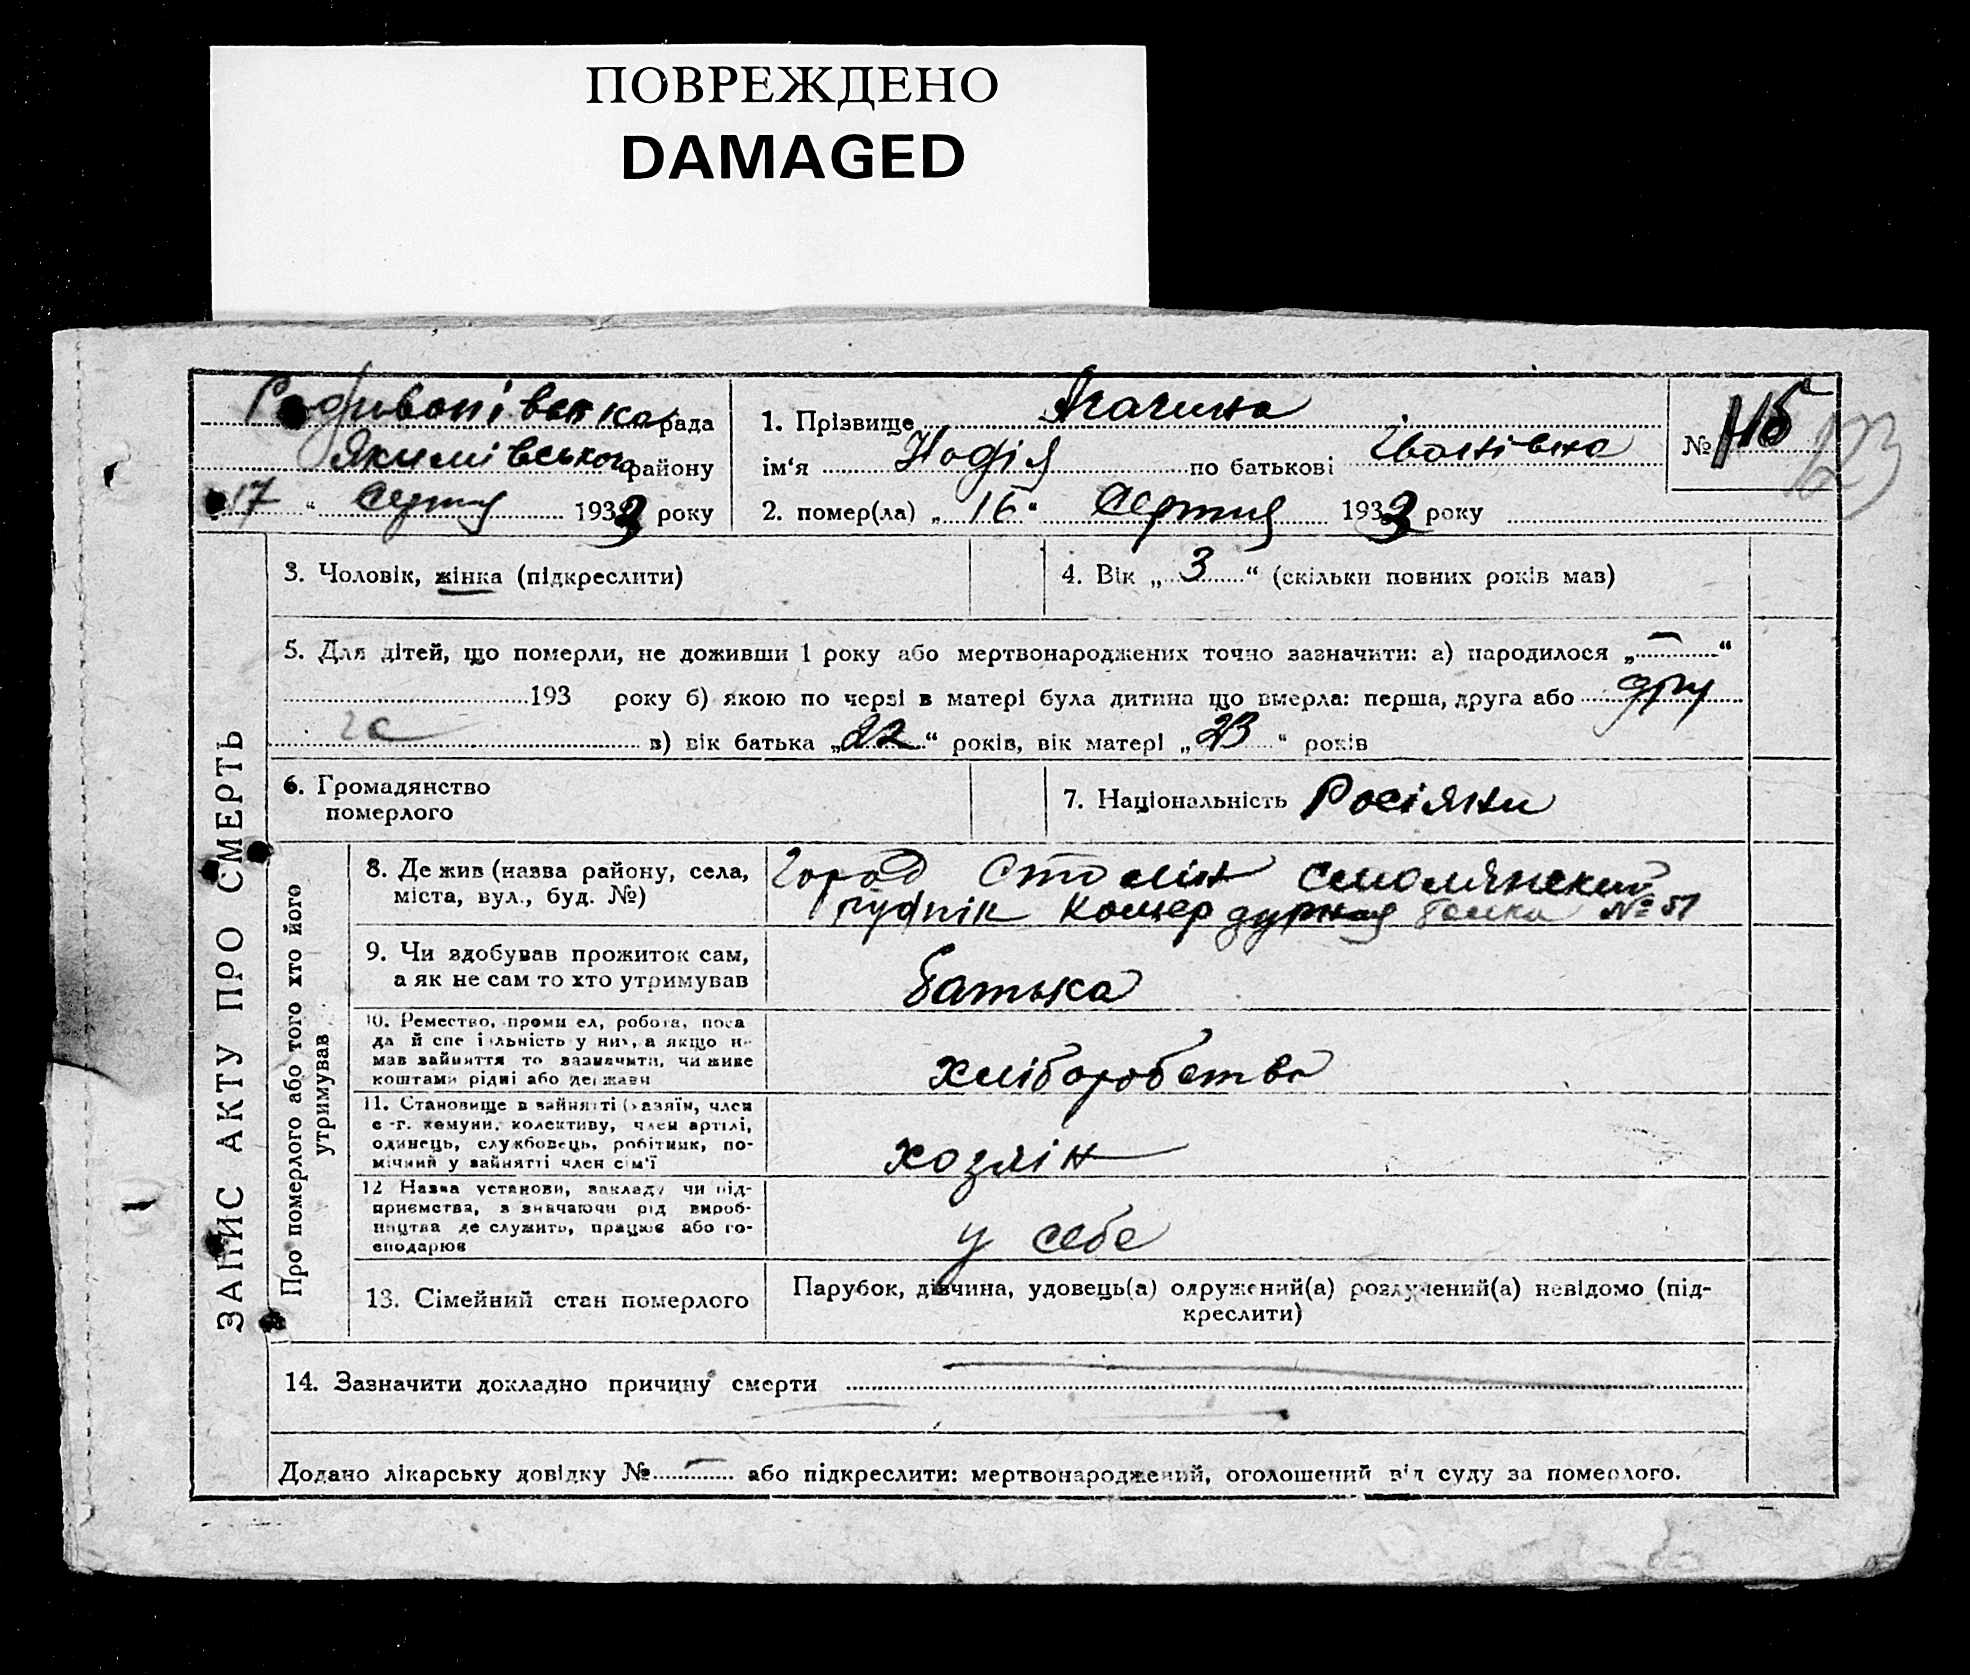 ПОВРЕЖДЕНО
DAMAGED
Родивонівська рада
Якимівського району
„17“ серпня 1933 року
1. Прізвище Агагина
ім‘я Нофія по батькові Іванівна
№ 115
123
2. помер(ла) „16“ Серпня 1933 року
ЗАПИС АКТУ ПРО СМЕРТЬ
3. Чоловік, жінка (підкреслити)
4. Вік „3“ (скільки повних років мав)
5. Для дітей, що померли, не доживши 1 року або мертвонароджених точно зазначити: а) народилося „—“
193 року б) якою по черзі в матері була дитина що вмерла: перша, друга або дру
га в) вік батька „22“ років, вік матері „23“ років
6. Громадянство
померлого
7. Національність Росіянки
Про померлого або того хто його
утримував
8. Де жив (назва району, села,
міста, вул., буд. №)
Город Сталін Смолянский
рудник Комер дурная балка № 51
9. Чи здобував прожиток сам,
а як не сам то хто утримував
батька
10. Ремество, промисел, робота, поса
да й спеціяльність у них, а якщо н
мав зайняття то зазначити, чи живе
коштами рідні або держави
хліборобство
11. Становище в зайнятті (хазяїн, член
с.-г. комуни, колективу, член артілі,
одинець, службовець, робітник, по-
мічний у зайнятті член сім‘ї
хозяін
12 Назва установи, закладу чи під-
приємства, зазначаючи рід вироб-
ництва де служить, працює або го-
сподарює
у себе
13. Сімейний стан померлого
Парубок, дівчина, удовець(а) одружений(а) розлучений(а) невідомо (під-
креслити)
14. Зазначити докладно причину смерти
Додано лікарську довідку № — або підкреслити: мертвонароджений, оголошений від суду за померлого.